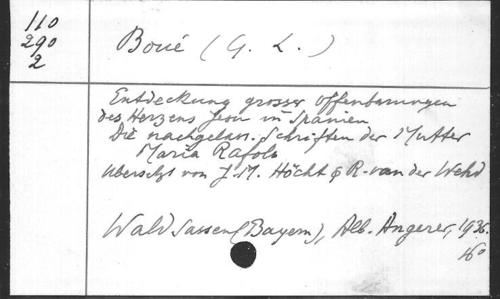 110
290
2
Boué (G. L.)
Entdeckung grosser Offenbarungen
des Herzens Jesu in Spanien
Die nachgelass. Schriften der Mutter
Maria Rafols
übersetzt von J. M. Höcht & R. van der Wehd
Waldsassen (Bayern), Alb. Angerer, 1936.
16°